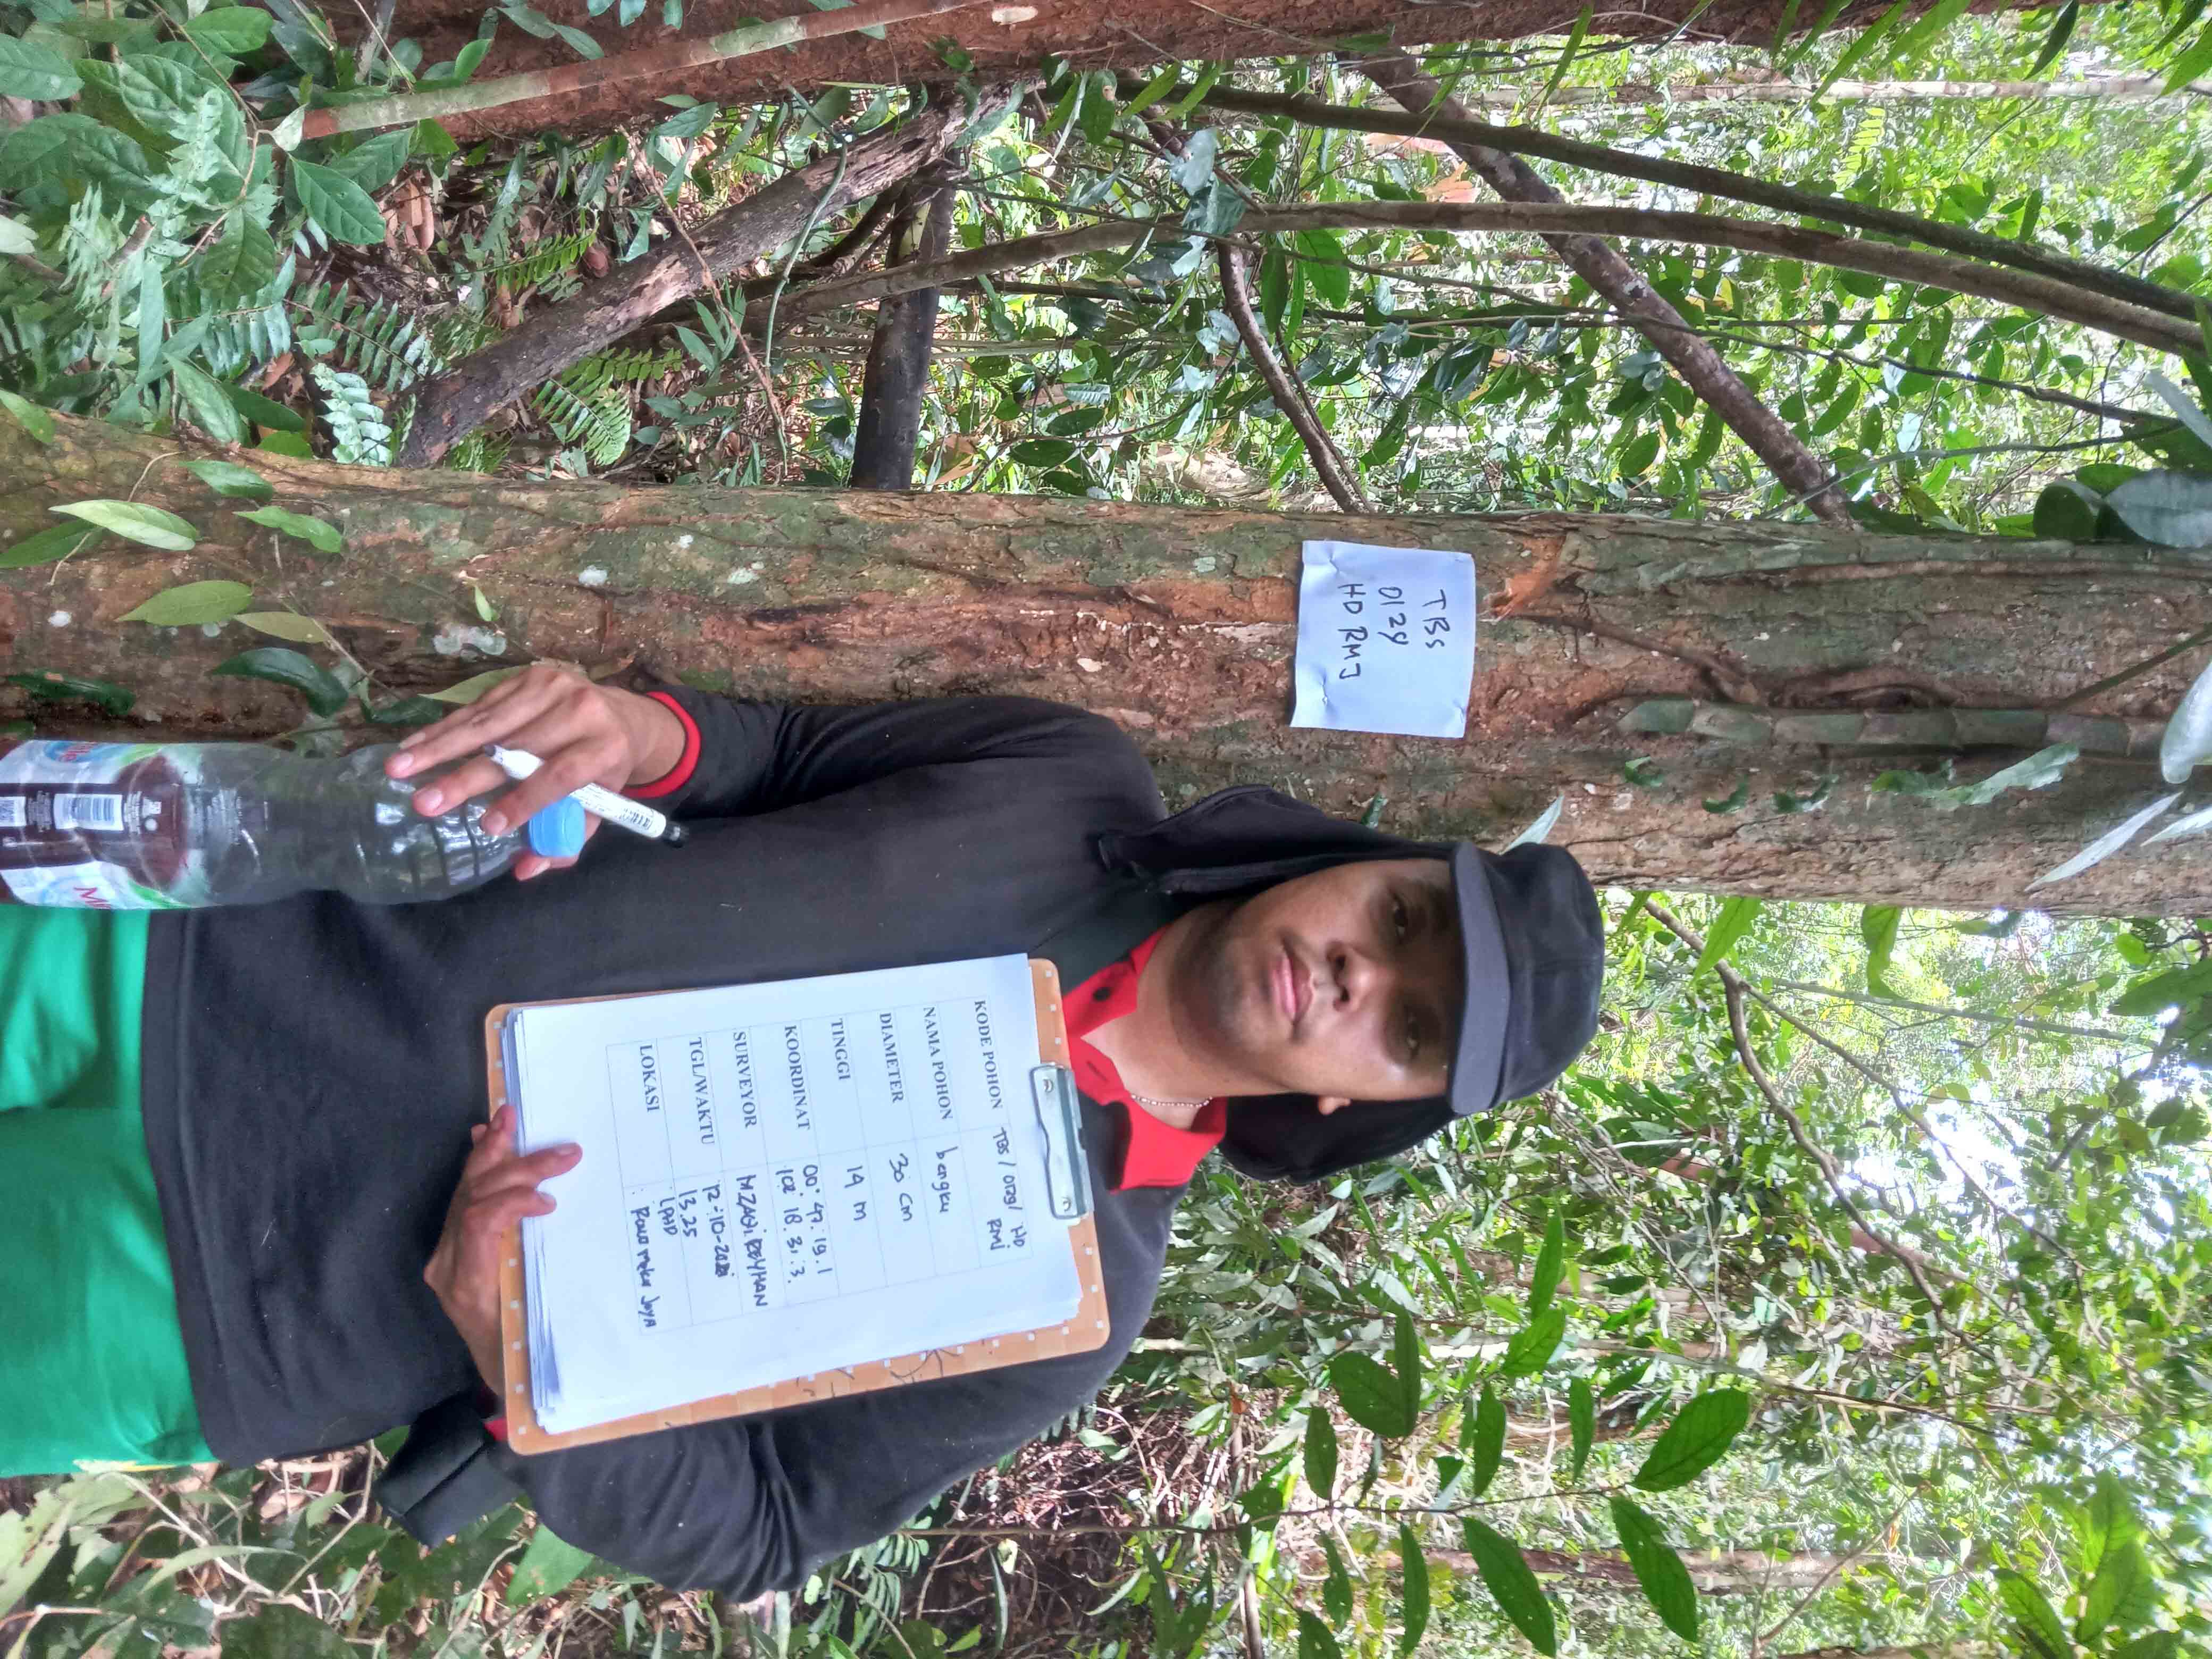 TBS
0129
HD RMJ
KODE POHON TBS / 0129 / HD
RMJ
NAMA POHON bengku
DIAMETER 30 cm
TINGGI 14 m
KOORDINAT 00° 47. 19. 1
102. 18. 31. 3.
SURVEYOR MZAQI. REYHAN
TGL/WAKTU 12-10-
13.25
LOKASI : LPHD
: Rawa mekar Jaya